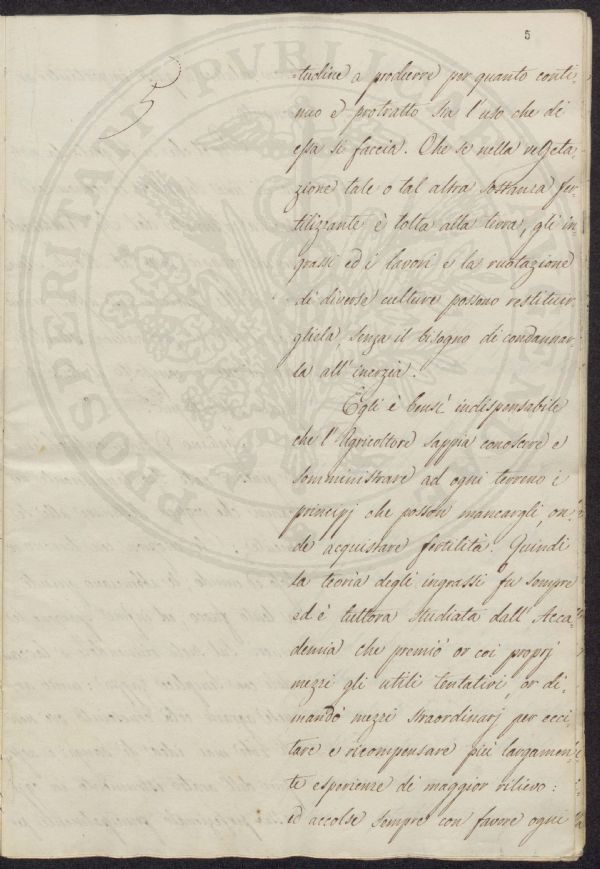 5
5
tudine a produrre per quanto conti-
nuo e protratto sia l'uso che di
essa si faccia. Che se nella vegeta
zione tale o tal altra sostanza fer-
tilizzante è tolta alla terra, gli in-
grassi ed i lavori e la ruotazione
di diverse culture possono restituir-
gliela, senza il bisogno di condannar-
la all'inerzia.
Egli è bensì indispensabile
che l'Agricoltore sappia conoscere e
somministrare ad ogni terreno i
principj che posson mancargli, on-
de acquistare fertilità. Quindi
la teoria degli ingrassi fu sempre
ed è tuttora studiata dall'Acca-
demia che premiò or coi proprj
mezzi gli utili tentativi, or di-
mandò mezzi straordinarj per ecci-
tare e ricompensare più largamen-
te esperienze di maggior rilievo:
ed accolse sempre con favore ogni
PROSPERITATI PVBLICAE